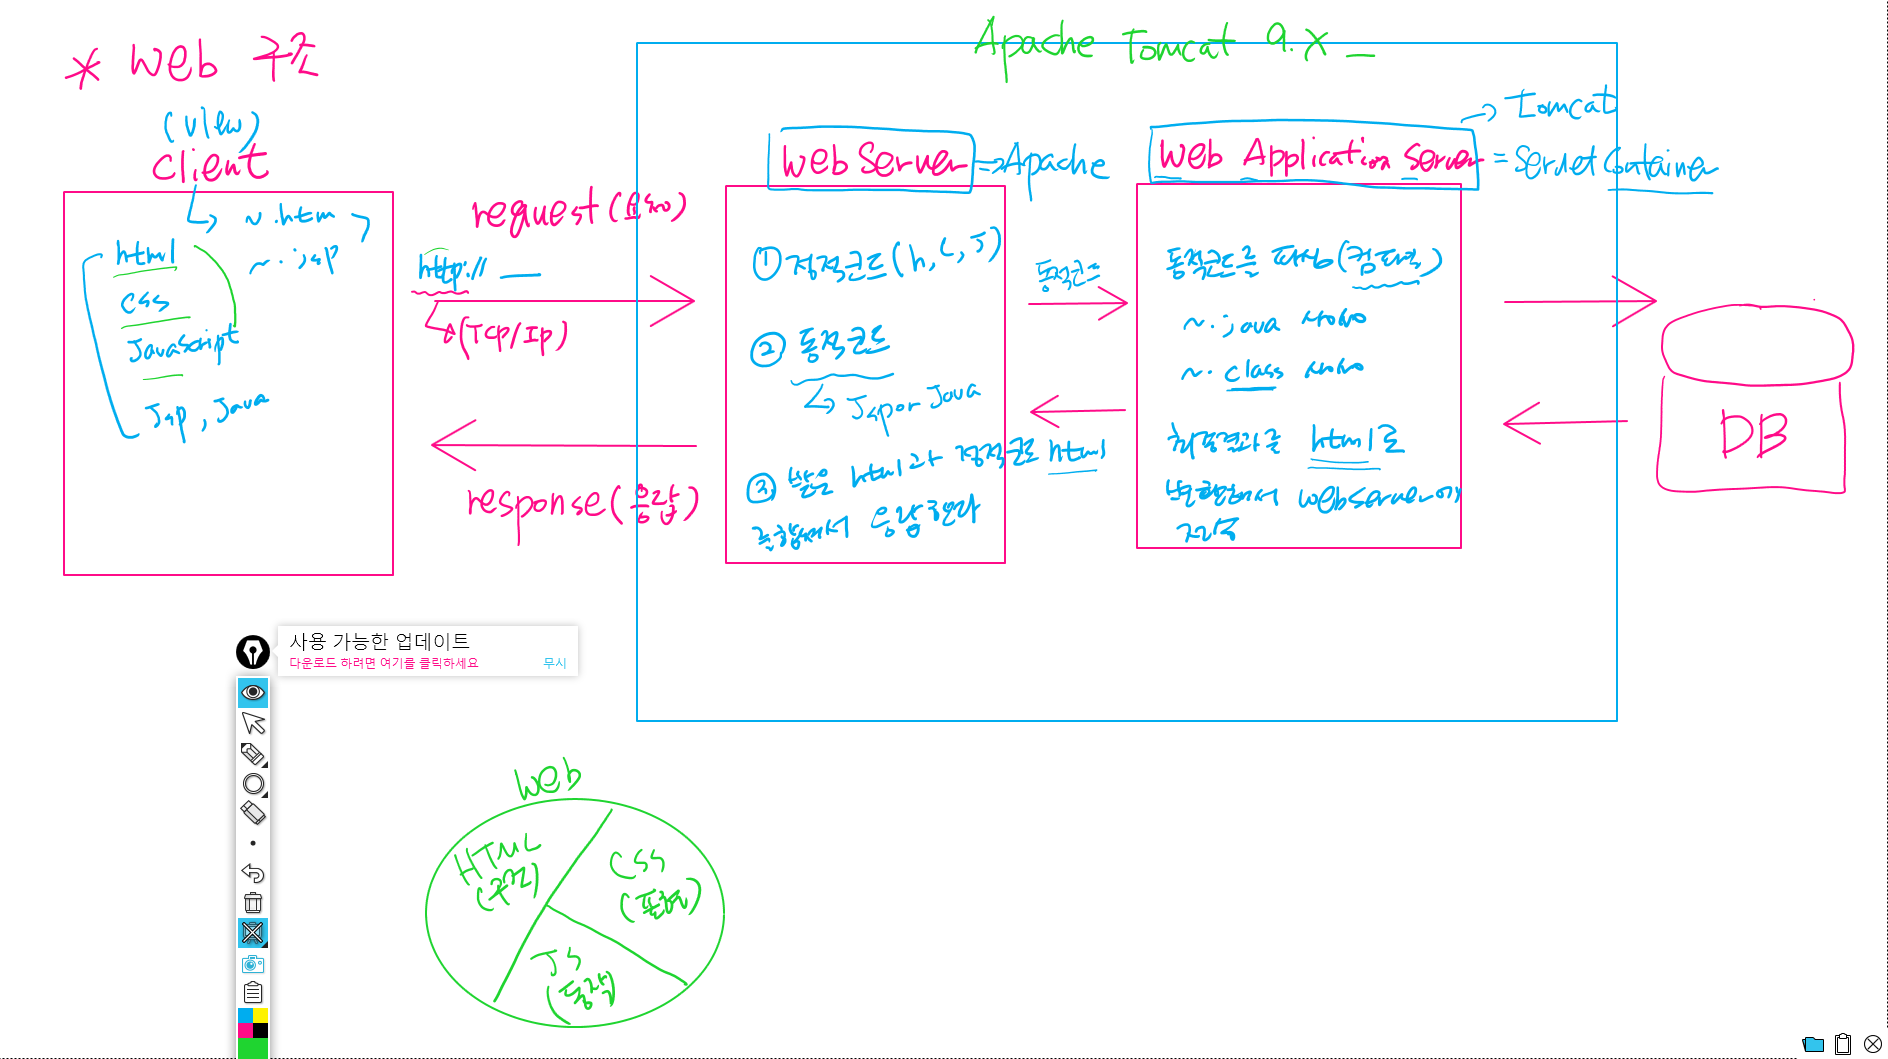 * Web 구조
Apache Tomcat 9.x
(view)
client
~.htm
~.jsp
html
css
JavaScript
Jsp, Java
request(요청)
http://
(Tcp/Ip)
response(응답)
Web Server
→Apache
① 정적코드(h, c, J)
② 동적코드
Jsp or Java
③ 받은 html과 정적코드 html
조합해서 응답한다
동적코드
Web Application Server
→ Tomcat
= Servlet Container
동적코드를 파싱(컴파일)
~.java
~.class
최종결과를 html로
변환해서 webserver에
전송
DB
사용 가능한 업데이트
다운로드 하려면 여기를 클릭하세요
무시
Web
HTML
(구조)
CSS
(표현)
JS
(동작)